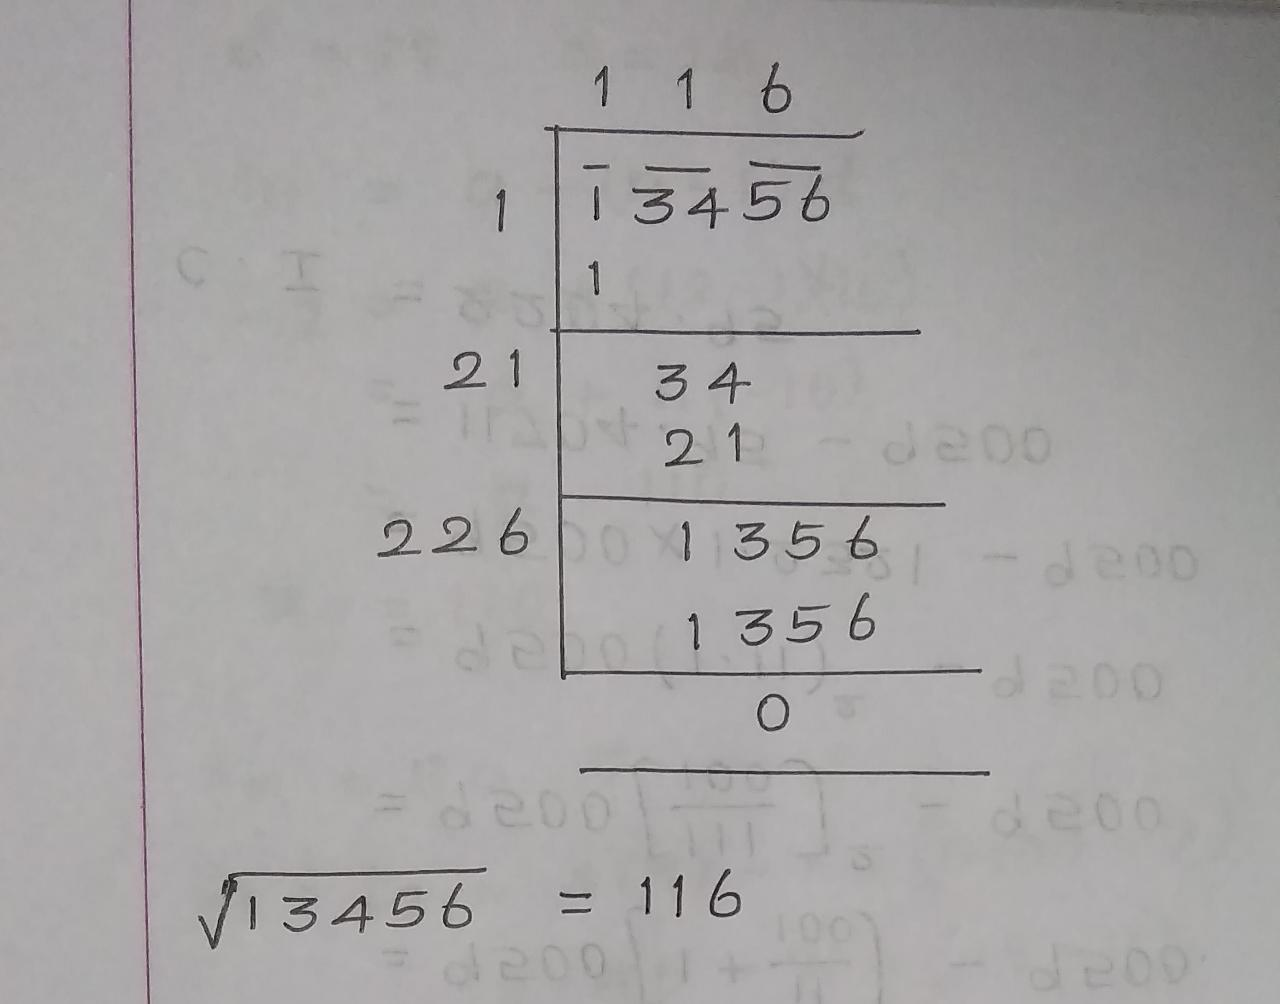 1 1 6
1 1 34 56
1
21 34
21
226 1356
1356
0
√13456 = 116